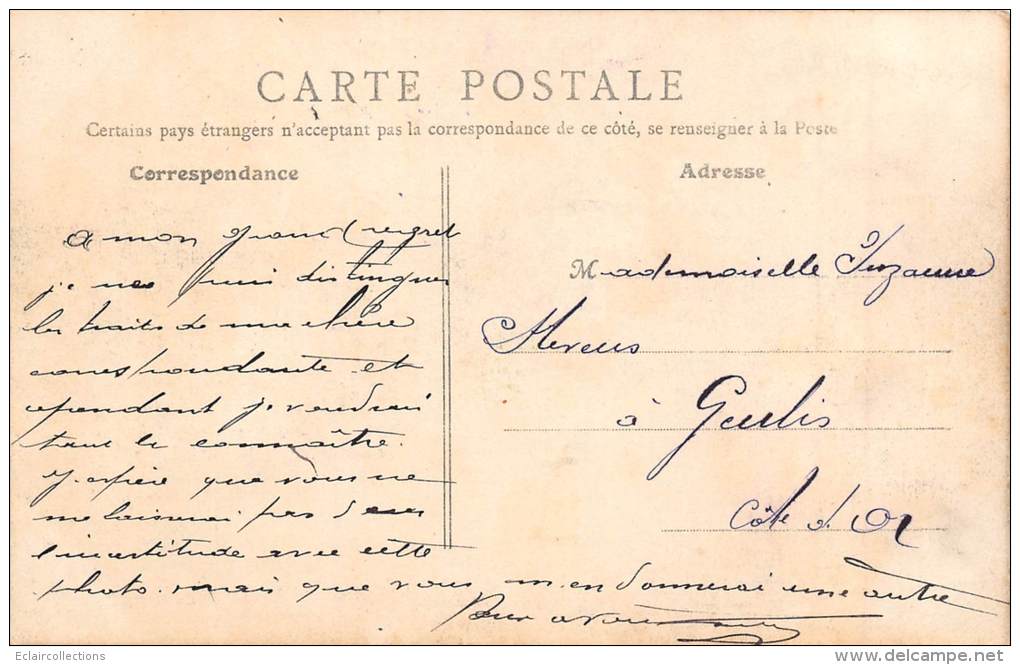 CARTE POSTALE
Certains pays étrangers n'acceptant pas la correspondance de ce côté, se renseigner à la Poste
Correspondance
a mon grand regret
je ne puis distinguer
les traits de ma chère
correspondante et
cependant je voudrai
tant la connaître.
J'espère que vous ne
me laisserai pas dans
l'incertitude avec cette
photo. mais que vous m'en donnerai une autre
Adresse
Mademoiselle Suzanne
à
Côte d'Or
Eclaircollections
www.delcampe.net